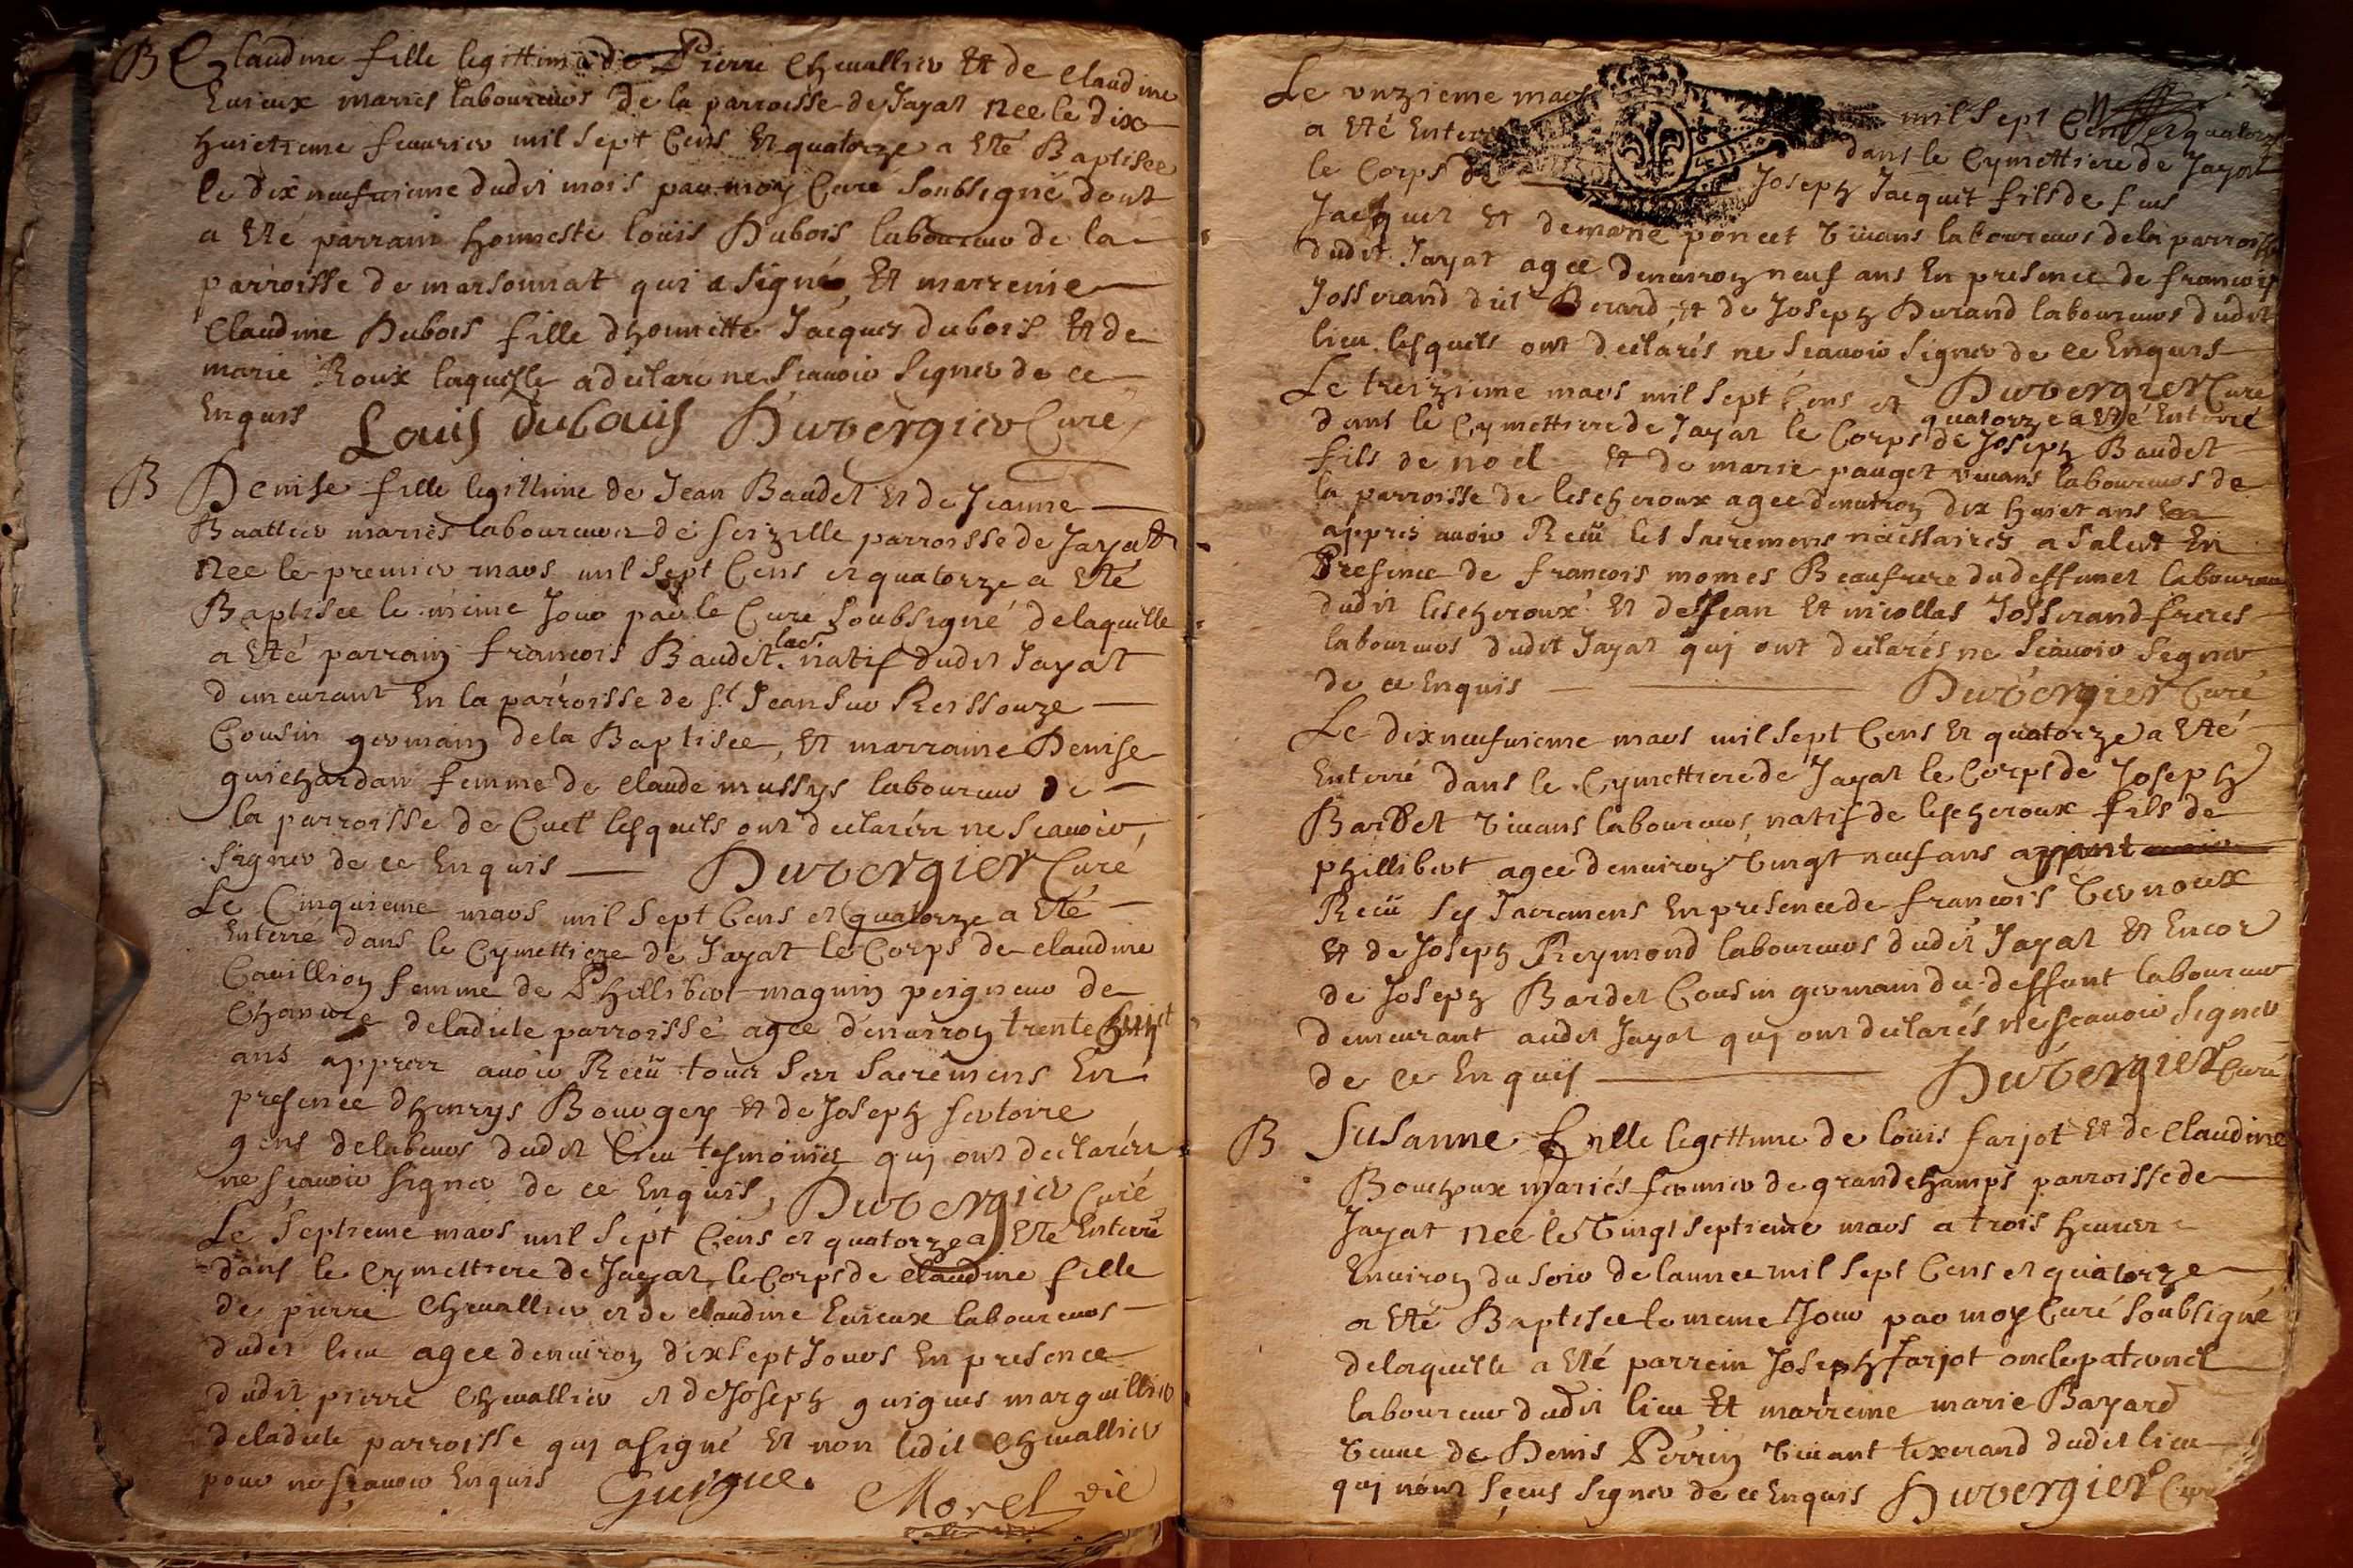 B Claudine fille legittime de Pierre Chevallier Et de Claudine
Evieux mariés laboureurs de la parroisse de Jayat Née le dix
huictieme fevurier mil sept Cens Et quatorze a Eté Baptisée
le dix neufvieme dudit mois par moy Curé soubsigné dont
a Eté parrain honneste loüis Dubois laboureur de la
parroisse de marsonnat qui a signé, Et marreine
Claudine Dubois fille dhonnette Jacques dubois Et de
marie Roux laquelle a declaré ne scavoir signer de ce
Enquis Louis dubouis Duvergier Curé
B Denise fille legittime de Jean Baudet et de Jeanne
Baatlier mariés laboureurs de parroisse de Jayat
Née le premier mars mil sept Cens et quatorze a Eté
Baptisée le meme Jour par le Curé soubsigné de laquelle
a Eté parrain francois Baudet labr natif dudit Jayat
demeurant En la parroisse de st Jean sur Reissouze
Cousin germain de la Baptisée, Et marraine Denise
guichardan femme de Claude mussys laboureur de
la parroisse de Cuet lesquels ont declarér ne scavoir
signer de ce Enquis Duvergier Curé
Le Cinquieme mars mil sept Cens et quatorze a Eté
Enterré dans le Cymettiere de Jayat le Corps de Claudine
Cavillion femme de Phillibert magnin peigneur de
Chanvre de ladite parroisse agee denviron trente huict
ans apprer avoir Reçu tous ser sacremens En
presence dhenrys Bourgey Et de Joseph fertoire
gens de labeurs dudit lieu tesmoins quj ont declarér
ne scavoir signer de ce Enquis, Duvergier Curé
Le Septieme mars mil sept Cens et quatorze a Eté Enterré
dans le Cymettiere de Jayat le Corps de Claudine fille
de pierre Chevallier et de Claudine Evieux laboureurs
dudit lieu agee denviron dix sept Jours En presence
dudit pierre Chevallier et de Joseph guigues marguillier
de ladite parroisse quj a signé Et non ledit Chevallier
pour ne scavoir Enquis Guigue. Morel vic
Le unzieme mars mil sept Cens et quatorze
a Eté Enterré dans le Cymettiere de Jayat
le Corps de Joseph Jacquet fils de feus
Jacquet Et de marie poncet vivans laboureurs de la parroisse
dudit Jayat agee denviron neuf ans En presence de francois
Josserand dit Berard, Et de Joseph Durand laboureurs dudit
lieu lesquels ont declarés ne scavoir signer de ce Enquis
Duvergier Curé
Le treizieme mars mil sept Cens et quatorze a Eté Enterré
dans le Cymettiere de Jayat le Corps de Joseph Baudet
fils de noel Et de marie pauget vivans laboureurs de
la parroisse de lescheroux agee denviron dix huict ans
appres avoir Reçü les sacremens nécessaires a salut En
Presence de francois momes Beaufrere du deffunct laboureur
dudit lescheroux Et de Jean Et nicollas Josserand freres
laboureurs dudit Jayat quj ont declarés ne scavoir signer
de ce Enquis Duvergier Curé
Le dix neufvieme mars mil sept Cens Et quatorze a Eté
Enterré dans le Cymettiere de Jayat le Corps de Joseph
Bardet vivans laboureurs natif de lescheroux fils de
phillibert agee denviron vingt neuf ans ayant
Reçü sej Sacremens En presence de francois vernoux
Et de Joseph Reymond laboureurs dudit Jayat Et Encor
de Joseph Bardet Cousin germain du deffunt laboureur
demeurant audit Jayat quj ont declarés ne scavoir signer
de ce Enquis Duvergier Curé
B Susanne fille legittime de loüis farjot Et de Claudine
Bouchoux mariés fermier de grandchamps parroisse de
Jayat Née le vingt septieme mars a trois heures
Environ du soir de lannee mil sept Cens et quatorze
a Eté Baptisee le meme Jour par moy Curé soubsigné
de laquelle a Eté parrein Joseph farjot oncle paternel
laboureur dudit lieu Et marreine marie Bayard
veuve de Denis Perrin vivant texerand dudit lieu
quj nont sceus signer de ce Enquis Duvergier Curé